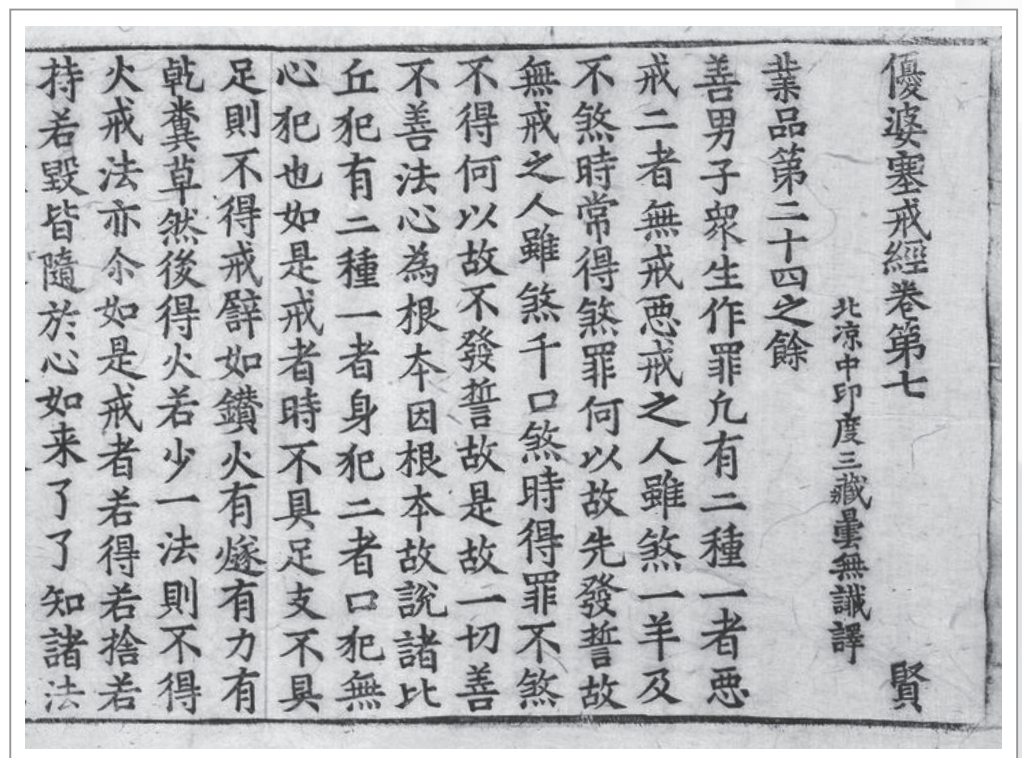 優婆塞戒經卷第七 賢
北涼中印度三藏曇無讖譯
業品第二十四之餘
善男子衆生作罪凢有二種一者惡
戒二者無戒惡戒之人雖煞一羊及
不煞時常得煞罪何以故先發誓故
無戒之人雖煞千口煞時得罪不煞
不得何以故不發誓故是故一切善
不善法心為根本因根本故説諸比
丘犯有二種一者身犯二者口犯無
心犯也如是戒者時不具足支不具
足則不得戒辟如鑚火有燧有力有
乹糞草然後得火若少一法則不得
火戒法亦尒如是戒者若得若捨若
持若毀皆隨於心如来了了知諸法